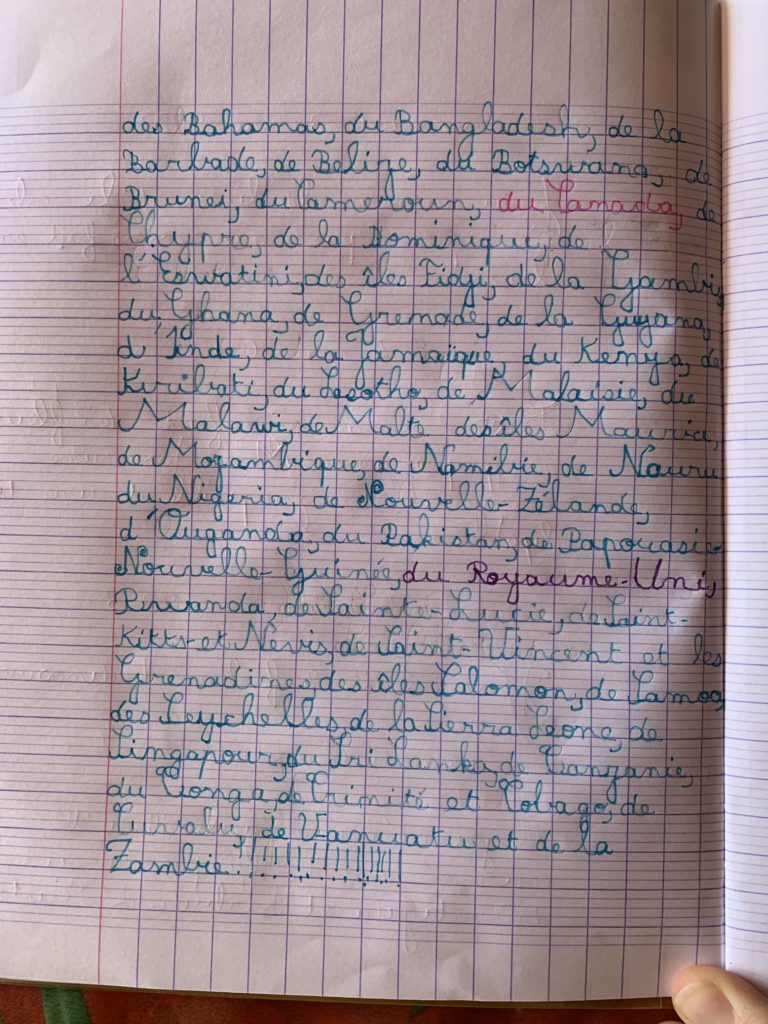 des Bahamas, du Bangladesh, de la
Barbade, de Belize, du Botswana, de
Brunei, du Cameroun, du Canada, de
Chypre, de la Dominique, de
l'Eswatini, des îles Fidji, de la Gambie,
du Ghana, de Grenade, de la Guyana,
d'Inde, de la Jamaïque, du Kenya, de
Kiribati, du Lesotho, de Malaisie, du
Malawi, de Malte des îles Maurice,
de Mozambique, de Namibie, de Nauru
du Nigeria, de Nouvelle-Zélande,
d'Ouganda, du Pakistan, de Papouasie-
Nouvelle-Guinée, du Royaume-Uni,
Rwanda, de Sainte-Lucie, de Saint-
Kitts-et Nevis, de Saint-Vincent et les
Grenadines, des îles Salomon, de Samoa,
des Seychelles, de la Sierra Leone, de
Singapour, du Sri Lanka, de Tanzanie,
du Tonga, de Trinité et Tobago, de
Tuvalu, de Vanuatu et de la
Zambie